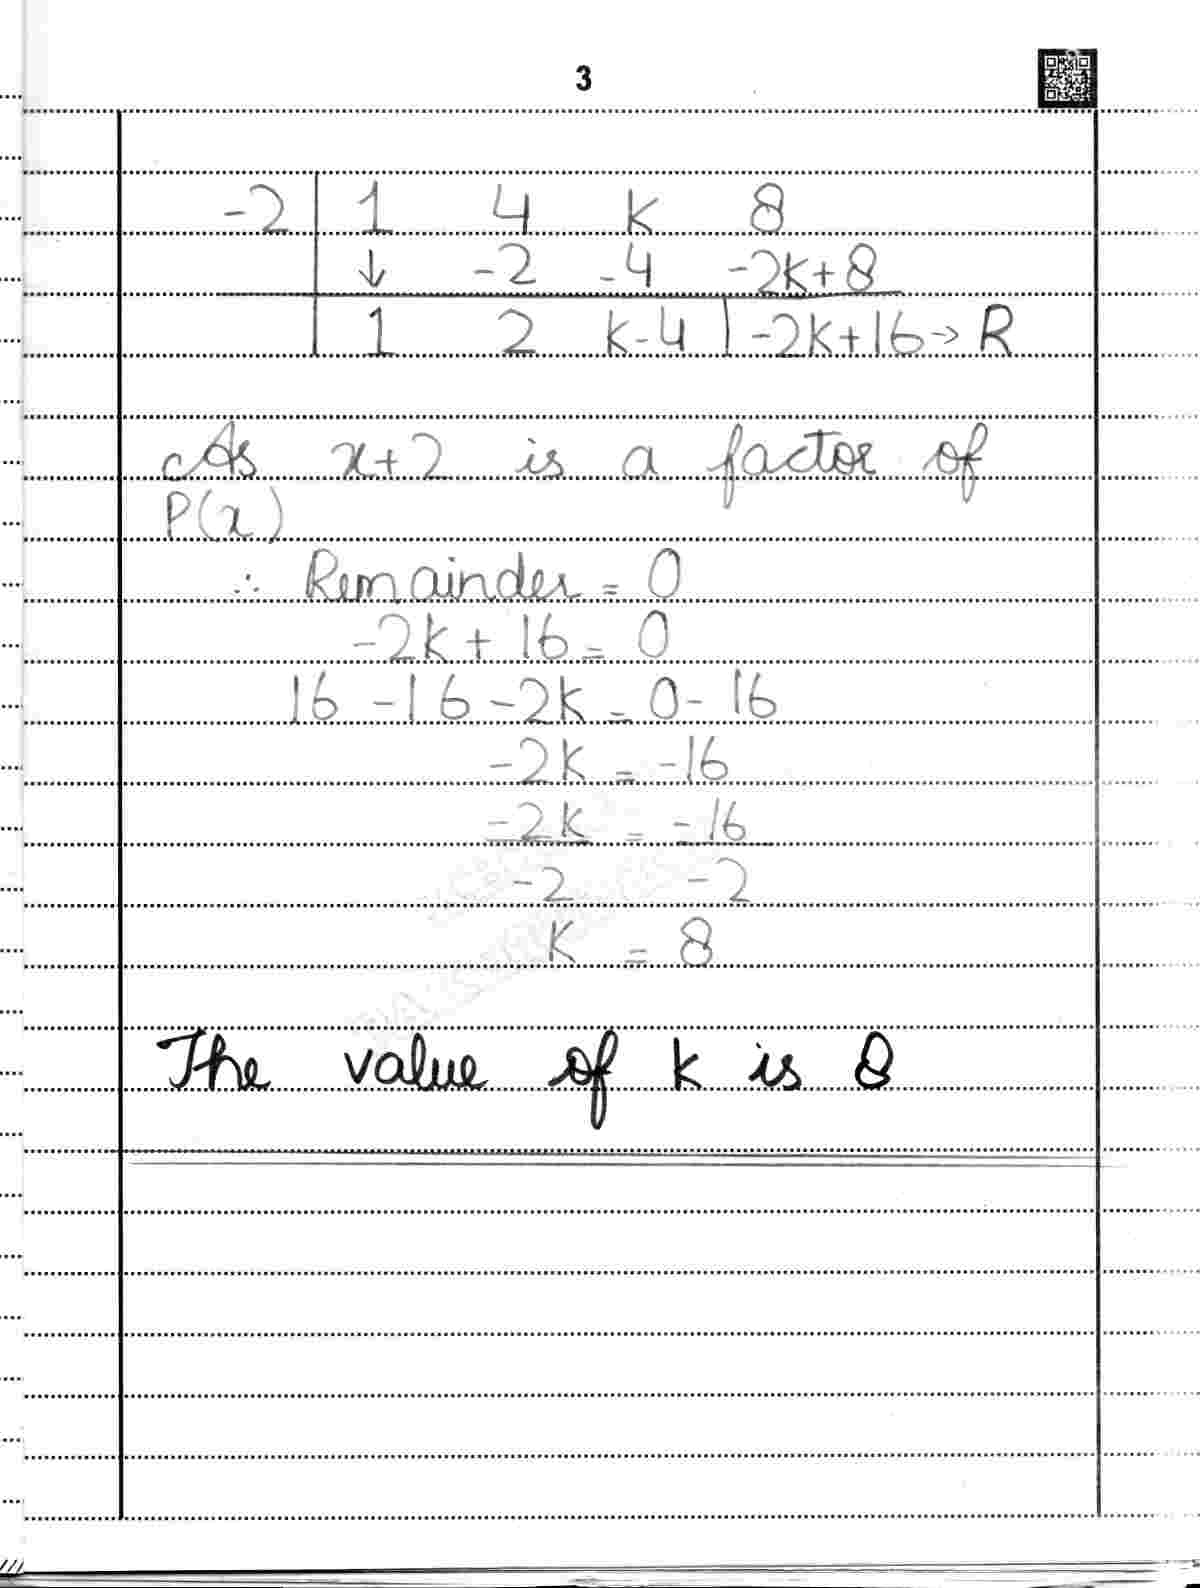 3
-2 | 1 4 k 8
↓ -2 -4 -2k+8
1 2 k-4 | -2k+16 → R
As x+2 is a factor of
P(x)
∴ Remainder = 0
-2k + 16 = 0
16 - 16 - 2k = 0 - 16
-2k = -16
-2k = -16
-2 -2
k = 8
The value of k is 8